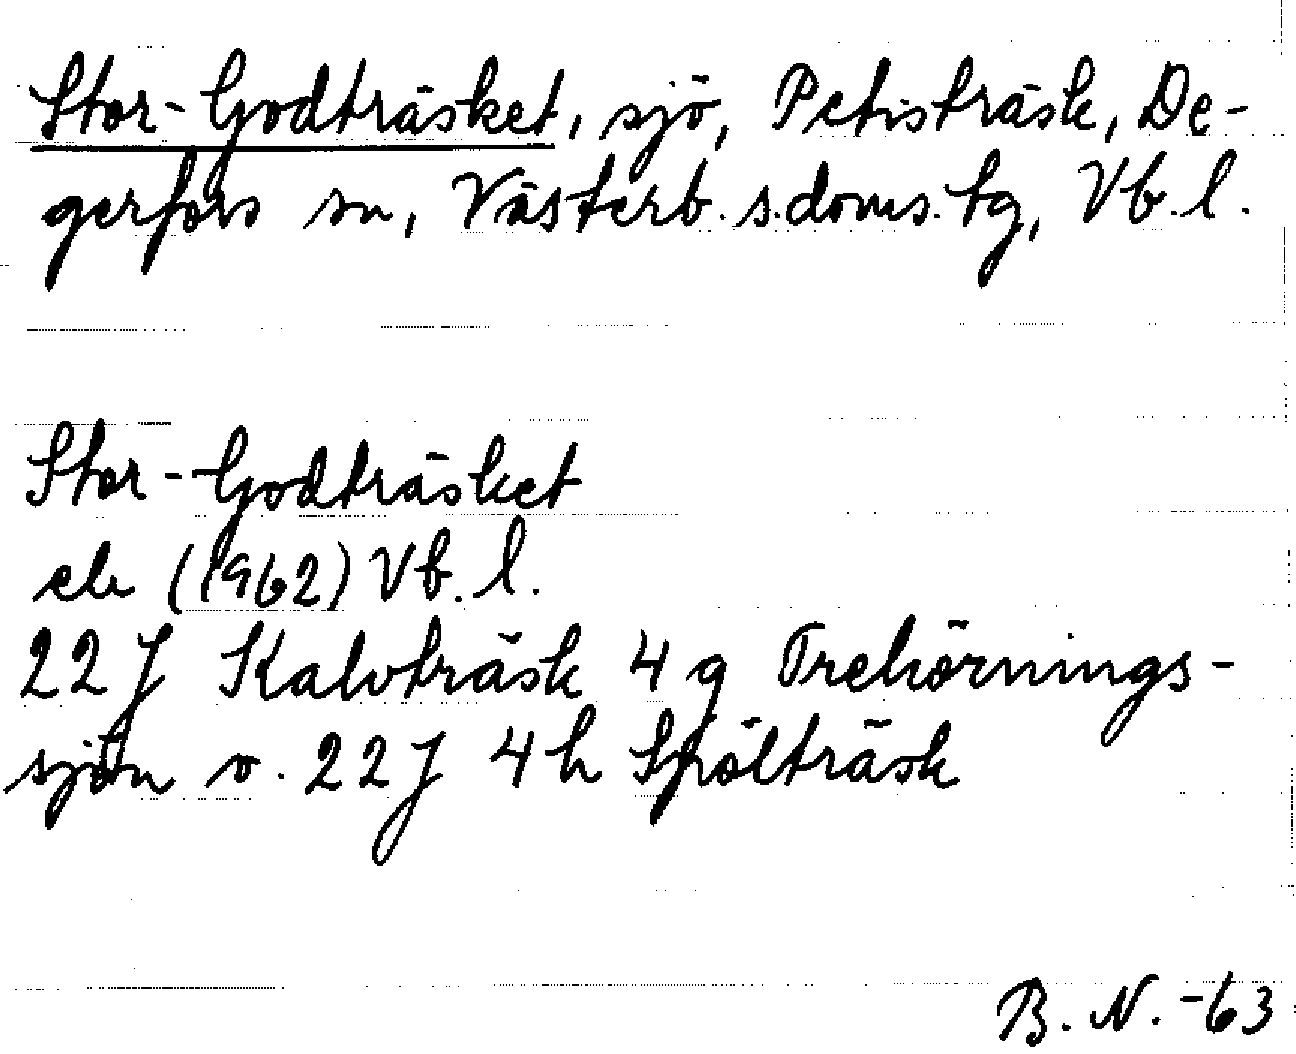 Stor-Godträsket, sjö, Petisträsk, De-
gerfors sn, Västerb. s. doms. tg, Vb. l.
Stor-Godträsket
ek (1962) Vb. l.
22 J Kalvträsk 4 g Trehörnings-
sjön o. 22 J 4 h Spölträsk
B. N. -63